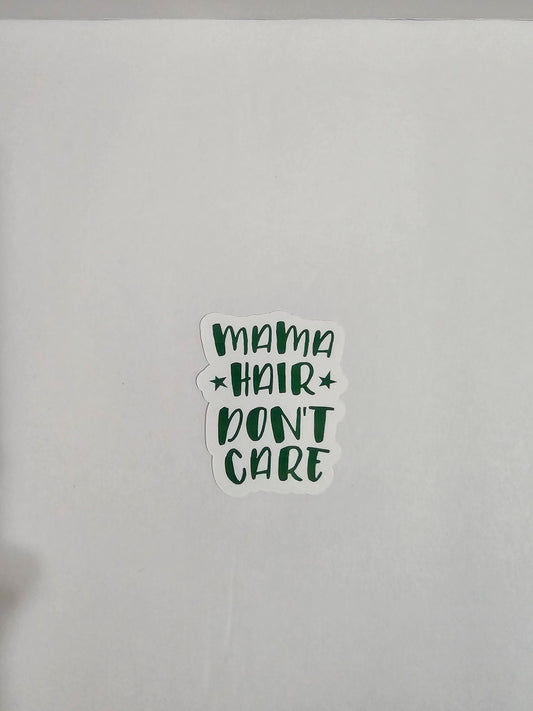 MAMA
HAIR
DON'T
CARE